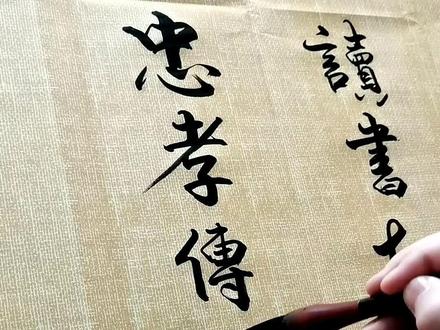 讀書
忠孝傳